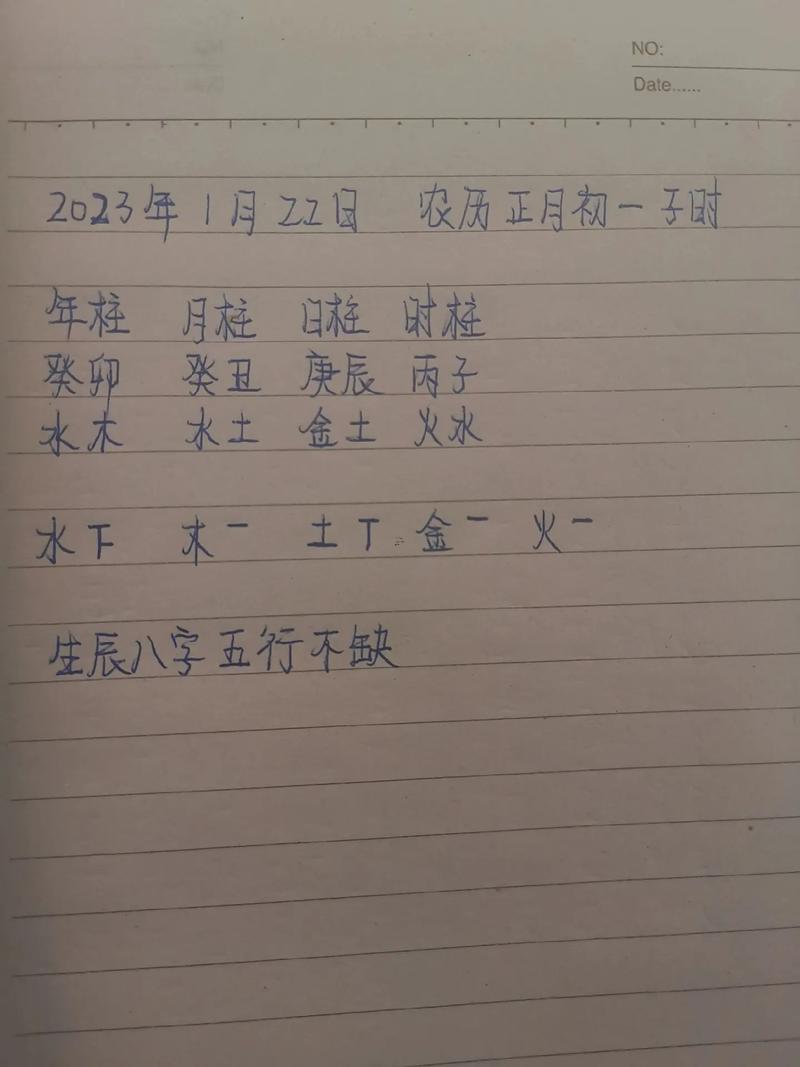 NO:
Date......
2023年1月22日 农历正月初一子时
年柱 月柱 日柱 时柱
癸卯 癸丑 庚辰 丙子
水木 水土 金土 火水
水下 木一 土丅 金一 火一
生辰八字五行不缺